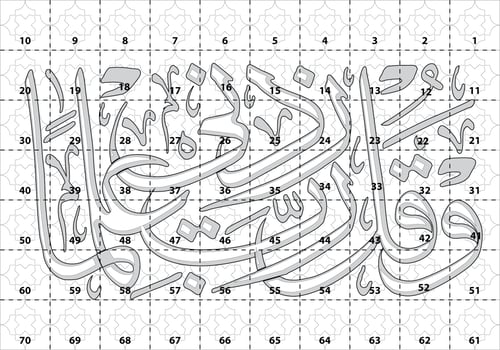 10 9 8 7 6 5 4 3 2 1
20 19 18 17 16 15 14 13 12 11
30 29 28 27 26 25 24 23 22 21
40 39 38 37 36 35 34 33 32 31
50 49 48 47 46 45 44 43 42 41
60 59 58 57 56 55 54 53 52 51
70 69 68 67 66 65 64 63 62 61
وقل رب زدني علما